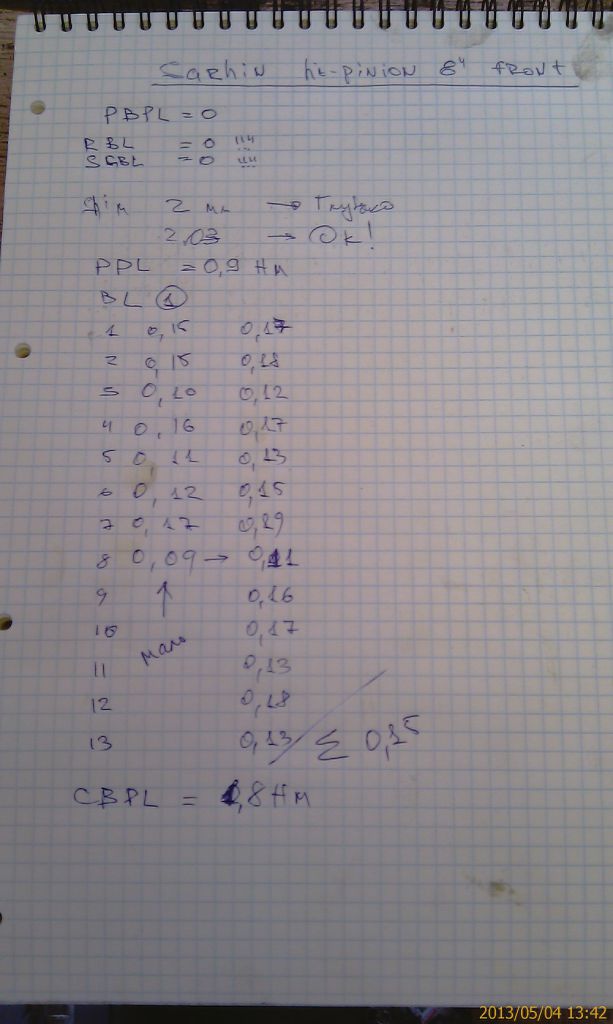 hi-pinion 8" front
PBPL = 0
RBL = 0 !!!
SGBL = 0 !!!
2 мм → Глубоко
2,03 → Ok!
PPL = 0,9 Нм
BL 1
1 0,15 0,17
2 0,15 0,18
3 0,10 0,12
4 0,16 0,17
5 0,11 0,13
6 0,12 0,15
7 0,17 0,19
8 0,09 → 0,11
9 ↑ 0,16
10 мало 0,17
11 0,13
12 0,18
13 0,13 Σ 0,15
CBPL = 1,8 Нм
2013/05/04 13:42